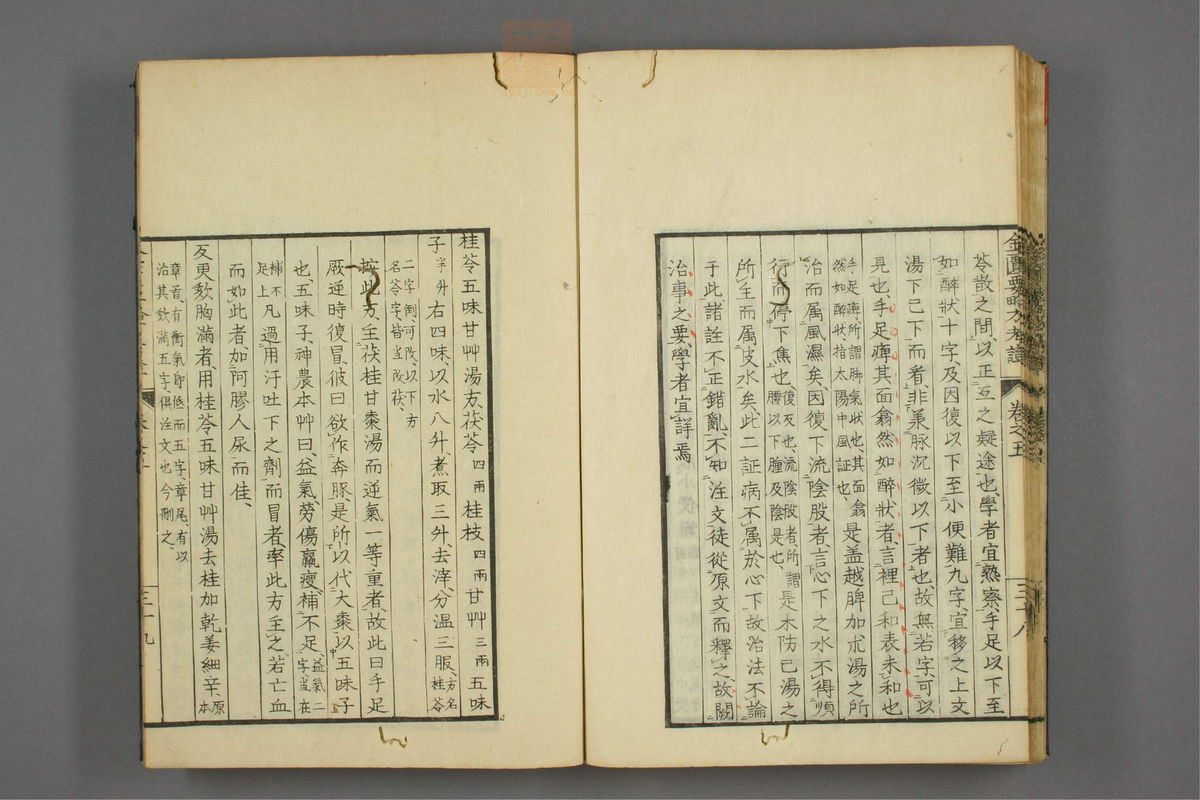 金匱要略方析義 卷之五 三十八
苓散之間、以正互之疑途也、學者宜熟察、手足以下至
如醉狀十字、及因復以下至小便難九字、宜移之上文
湯下已下而看、非兼脉沉微以下者也、故無若字、可以
見也、手足痺其面翕然如醉狀者、言裡已和表未和也
手足痺、所謂脚氣狀也、其面翕
然如醉狀、指太陽中風証也、
是盖越脾加朮湯之所
治而属風濕矣、因復下流陰股者、言心下之水不得順
行而停下焦也、
復反也、流陰股者、所謂
腰以下腫及陰是也、
是木防己湯之
所主而属皮水矣、此二証病不属於心下、故治法不論
于此、諸詮不正錯亂、不知注文、徒從原文而釋之、故闕
治事之要、學者宜詳焉
桂苓五味甘艸湯方、茯苓四兩 桂枝四兩 甘艸三兩 五味
子半升 右四味、以水八升、煮取三升、去滓、分溫三服、
方名
桂苓
二字倒、可改、以下方
名苓字、皆當改茯、
按此方、主茯桂甘棗湯而逆氣一等重者、故此曰手足
厥逆時復冒、彼曰欲作奔豚、是所以代大棗以五味子
也、五味子、神農本艸曰、益氣、勞傷羸瘦、補不足、
益氣二
字當在
補不
足上
凡過用汗吐下之劑、而冒者、率此方主之、若亡血
而如此者、加阿膠人尿而佳、
反更欬胸滿者、用桂苓五味甘艸湯去桂加乾姜細辛、
原
本
章首、有衝氣即低而五字、章尾、有以
治其欬滿五字、俱注文也、今刪之、
三十九